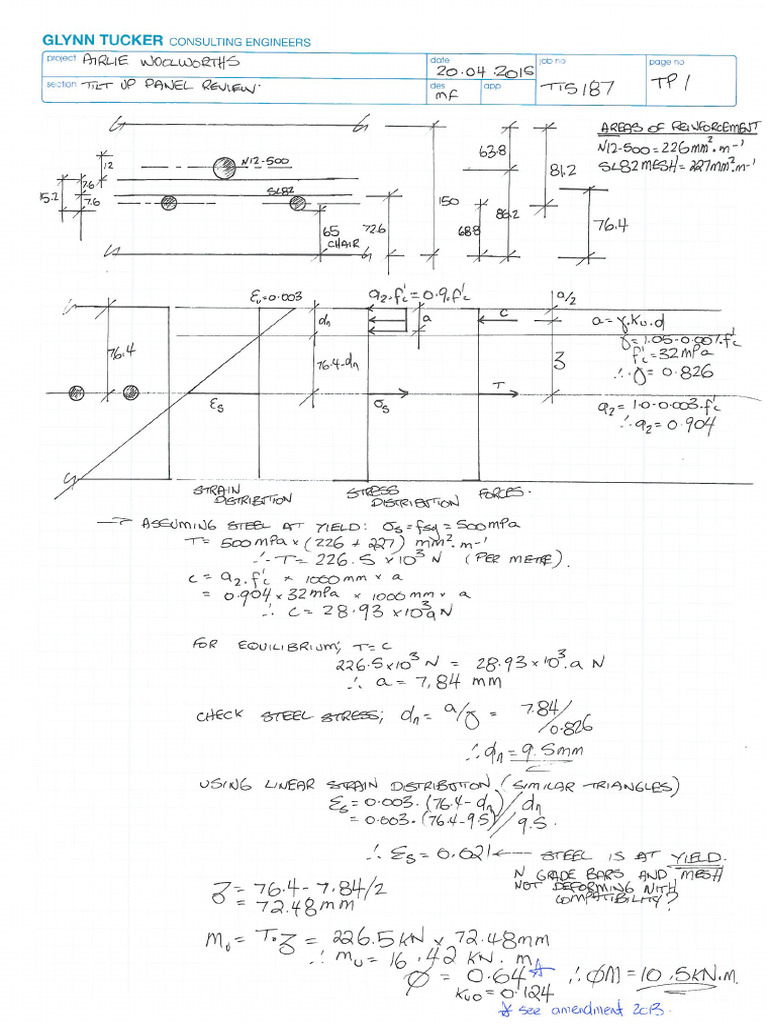 GLYNN TUCKER CONSULTING ENGINEERS
project AIRLIE WOOLWORTHS
date 20.04.2015
job no TT5187
page no TP1
section TILT UP PANEL REVIEW.
des MF
app
AREAS OF REINFORCEMENT
N12-500 = 226mm².m⁻¹
SL82 MESH = 227mm².m⁻¹
N12-500
SL82
12
7.6
7.6
15.2
65 CHAIR
72.6
150
63.8
68.8
86.2
81.2
76.4
εu=0.003
α2.f'c=0.9.f'c
dn
a
C
a/2
76.4
76.4-dn
εs
σs
T
z
a = γ.ku.d
γ = 1.05-0.007.f'c
f'c = 32MPa
∴ γ = 0.826
α2 = 1.0-0.003.f'c
∴ α2 = 0.904
STRAIN DISTRIBUTION
STRESS DISTRIBUTION
FORCES.
→ ASSUMING STEEL AT YIELD: σs = fsy = 500MPa
T = 500MPa × (226 + 227) mm².m⁻¹
∴ T = 226.5 ×10³ N (PER METRE).
C = α2.f'c × 1000mm × a
= 0.904 × 32MPa × 1000mm × a
∴ C = 28.93 ×10³a N
FOR EQUILIBRIUM; T = C
226.5×10³ N = 28.93×10³.a N
∴ a = 7.84 mm
CHECK STEEL STRESS; dn = a/γ = 7.84/0.826
∴ dn = 9.5mm
USING LINEAR STRAIN DISTRIBUTION (SIMILAR TRIANGLES)
εs = 0.003.(76.4-dn)/dn
= 0.003.(76.4-9.5)/9.5.
∴ εs = 0.021 ← STEEL IS AT YIELD.
N GRADE BARS AND MESH
NOT DEFORMING WITH
COMPATIBILITY?
z = 76.4 - 7.84/2
= 72.48mm
Mu = T.z = 226.5kN × 72.48mm
∴ Mu = 16.42 kN.m
Ø = 0.64* ∴ ØM = 10.5kN.m.
kuo = 0.124
* see amendment 2013